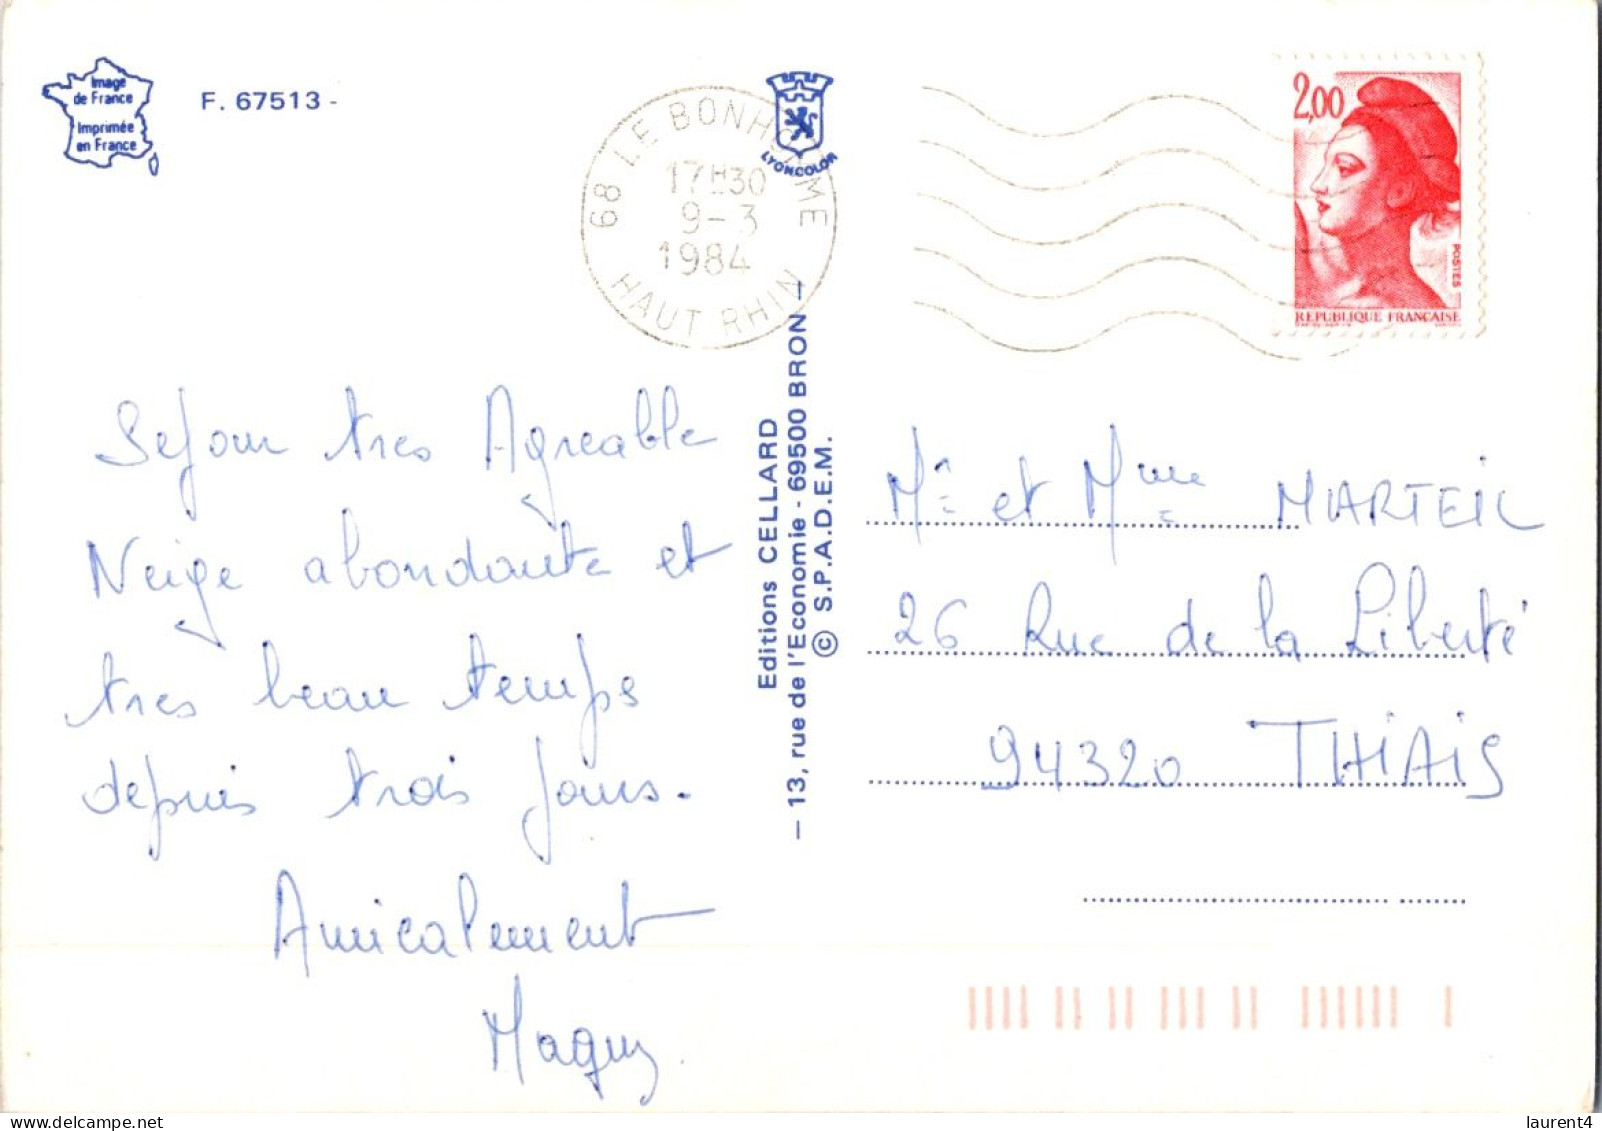 Image
de France
Imprimée
en France
F. 67513 -
68 LE BONHOMME
17H30
9-3
1984
HAUT RHIN
LYONCOLOR
2,00
POSTES
REPUBLIQUE FRANÇAISE
Sejour tres Agreable
Neige abondante et
tres beau temps
depuis trois jours.
Amicalement
Maguy.
Editions CELLARD
— 13, rue de l'Economie - 69500 BRON —
© S.P.A.D.E.M.
Mr et Mme MARTEIL
26 Rue de la Liberté
94320 THiAiS
www.delcampe.net
laurent4